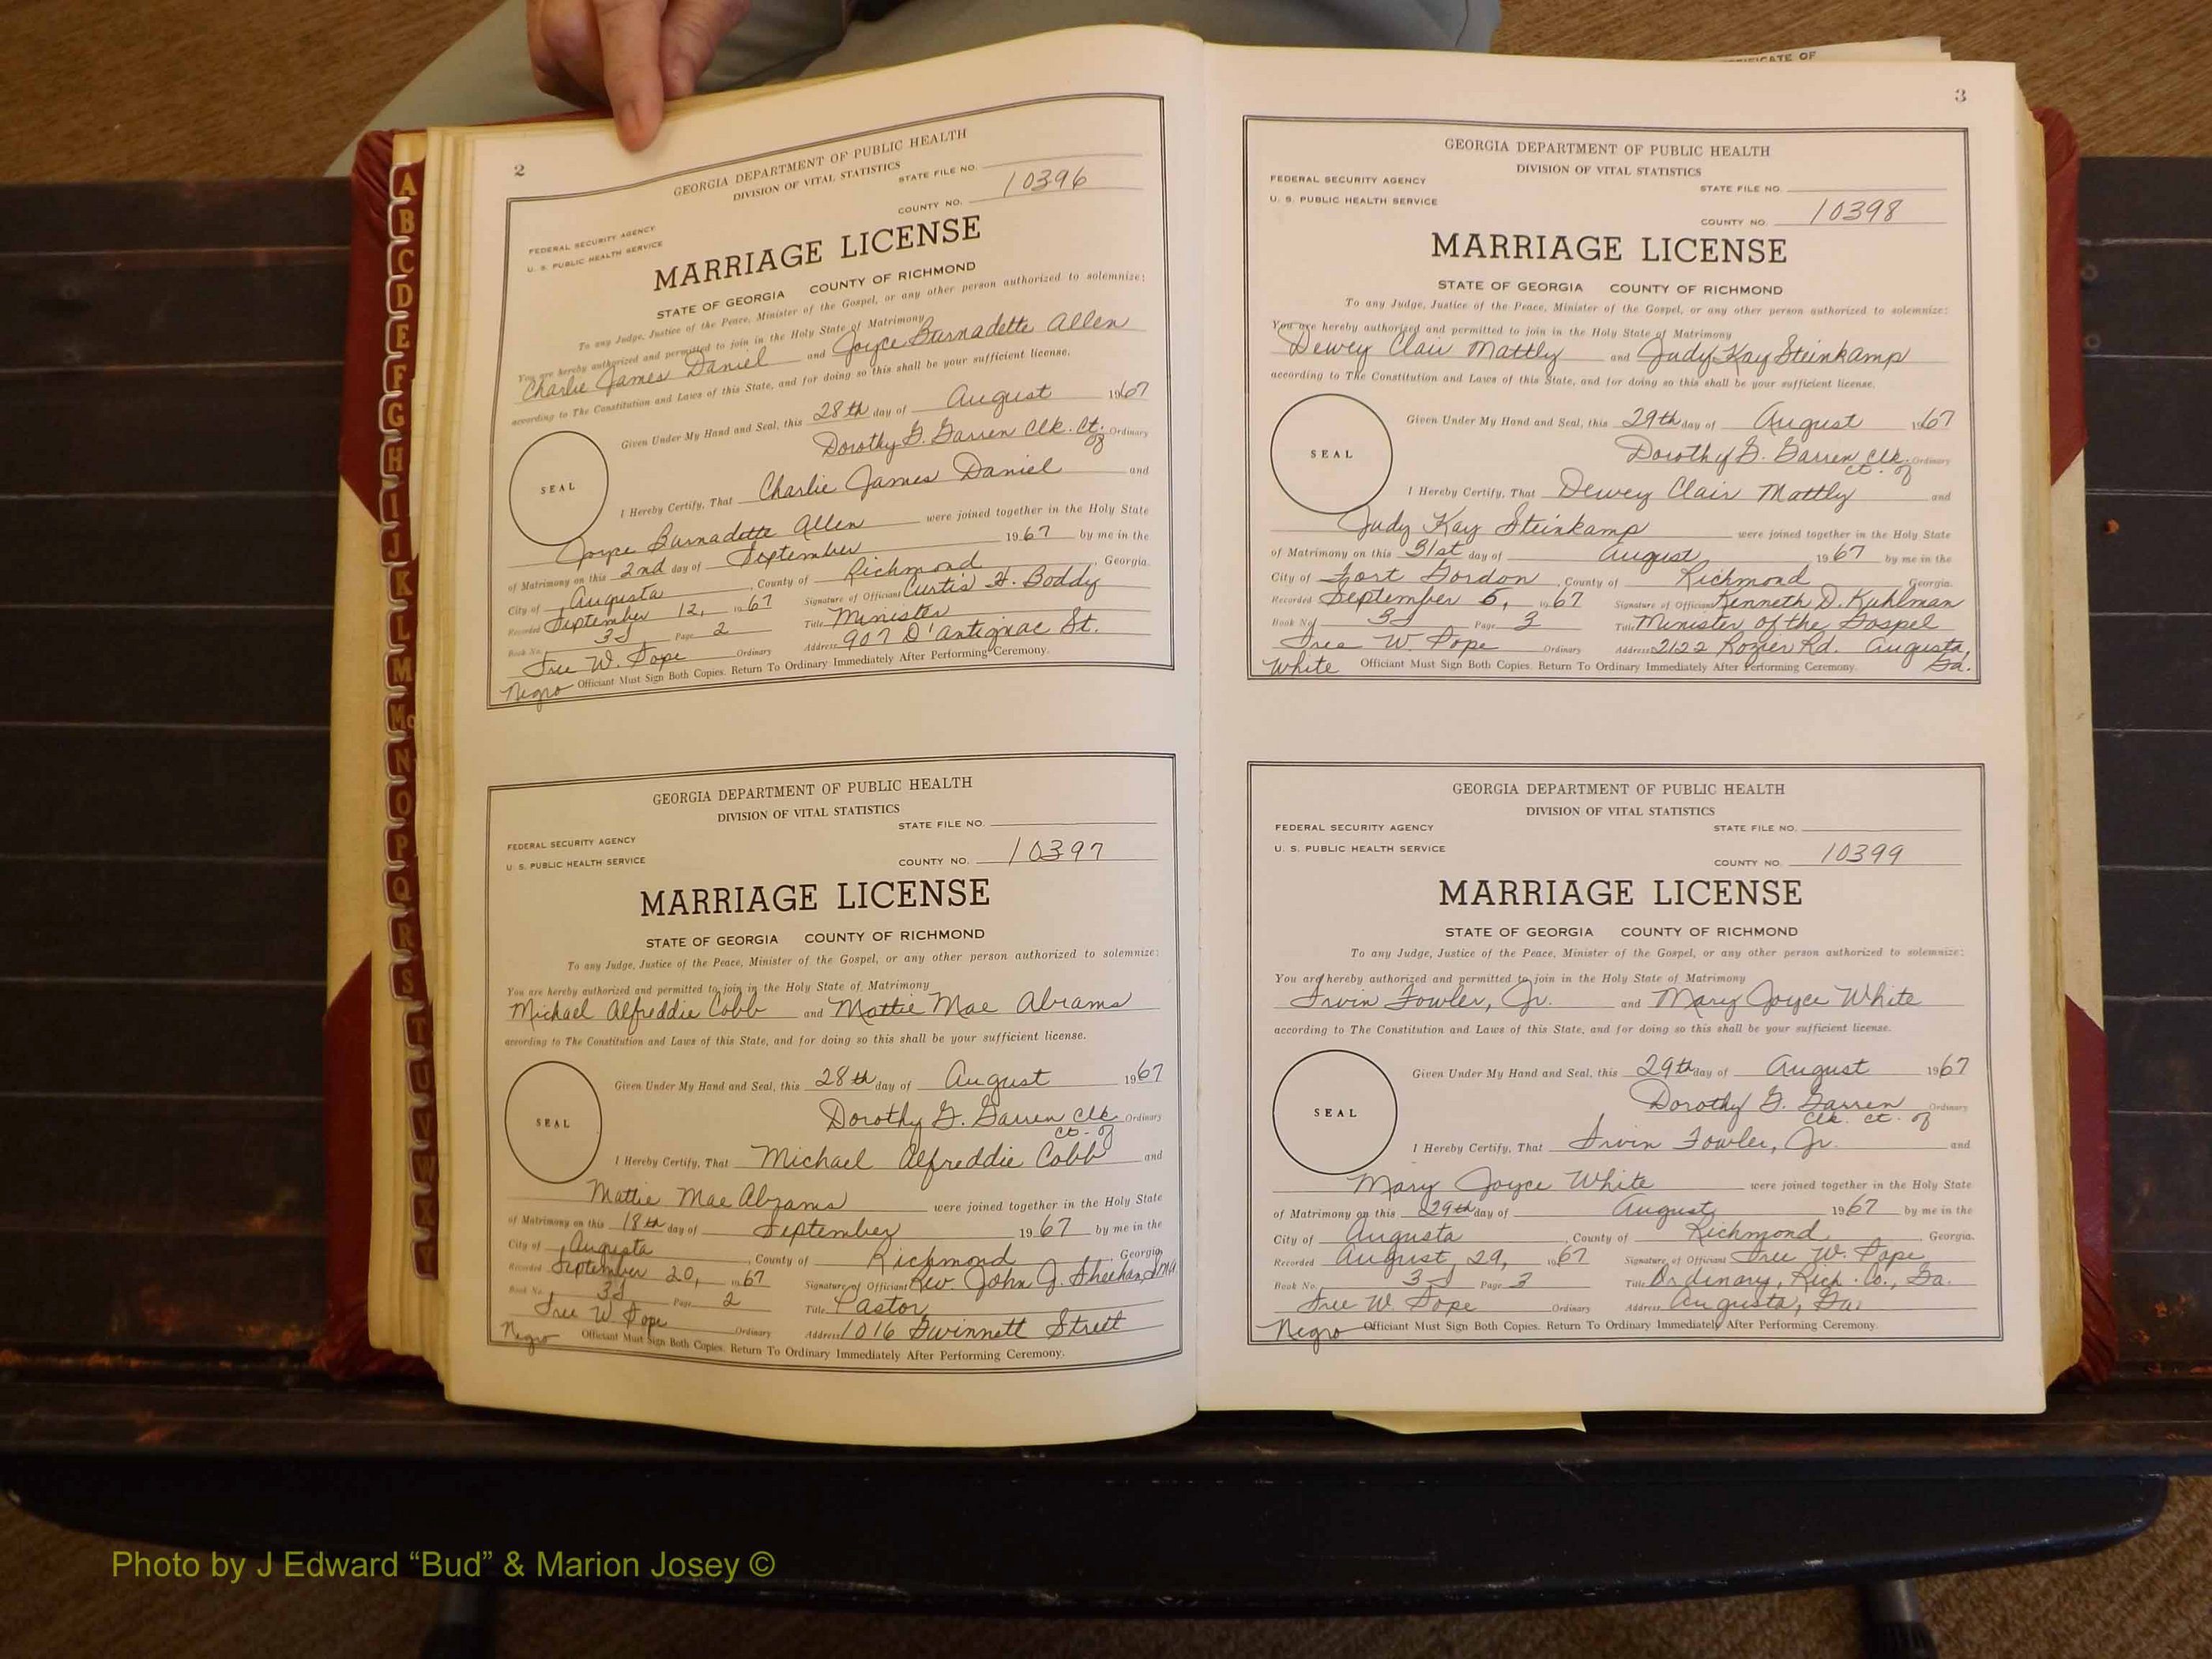 CERTIFICATE OF
A
B
C
D
E
F
G
H
I
J
K
L
M
Mc
N
O
P
Q
R
S
T
U
V
W
X
Y
2
GEORGIA DEPARTMENT OF PUBLIC HEALTH
DIVISION OF VITAL STATISTICS
STATE FILE NO.
FEDERAL SECURITY AGENCY
U. S. PUBLIC HEALTH SERVICE
COUNTY NO. 10396
MARRIAGE LICENSE
STATE OF GEORGIA COUNTY OF RICHMOND
To any Judge, Justice of the Peace, Minister of the Gospel, or any other person authorized to solemnize:
You are hereby authorized and permitted to join in the Holy State of Matrimony
Charlie James Daniel and Joyce Burnadette Allen
according to The Constitution and Laws of this State, and for doing so this shall be your sufficient license.
Given Under My Hand and Seal, this 28th day of August 1967
Dorothy G. Garren Clk. Ct. of Ordinary
SEAL
I Hereby Certify, That Charlie James Daniel and
Joyce Burnadette Allen were joined together in the Holy State
of Matrimony on this 2nd day of September 1967 by me in the
City of Augusta, County of Richmond, Georgia.
Recorded September 12, 1967 Signature of Officiant Curtis H. Boddy
Book No. 3J Page 2 Title Minister
Tree W. Pope Ordinary Address 907 D'antignac St.
Negro Officiant Must Sign Both Copies. Return To Ordinary Immediately After Performing Ceremony.
GEORGIA DEPARTMENT OF PUBLIC HEALTH
DIVISION OF VITAL STATISTICS
STATE FILE NO.
FEDERAL SECURITY AGENCY
U. S. PUBLIC HEALTH SERVICE
COUNTY NO. 10397
MARRIAGE LICENSE
STATE OF GEORGIA COUNTY OF RICHMOND
To any Judge, Justice of the Peace, Minister of the Gospel, or any other person authorized to solemnize:
You are hereby authorized and permitted to join in the Holy State of Matrimony
Michael Alfreddie Cobb and Mattie Mae Abrams
according to The Constitution and Laws of this State, and for doing so this shall be your sufficient license.
Given Under My Hand and Seal, this 28th day of August 1967
Dorothy G. Garren Clk. Ordinary
Ct. of
SEAL
I Hereby Certify, That Michael Alfreddie Cobb and
Mattie Mae Abrams were joined together in the Holy State
of Matrimony on this 18th day of September 1967 by me in the
City of Augusta, County of Richmond, Georgia
Recorded September 20, 1967 Signature of Officiant Rev. John G. Sheehan, SMA
Book No. 3J Page 2 Title Pastor
Tree W. Pope Ordinary Address 1016 Gwinnett Street
Negro Officiant Must Sign Both Copies. Return To Ordinary Immediately After Performing Ceremony.
3
GEORGIA DEPARTMENT OF PUBLIC HEALTH
DIVISION OF VITAL STATISTICS
FEDERAL SECURITY AGENCY
STATE FILE NO.
U. S. PUBLIC HEALTH SERVICE
COUNTY NO. 10398
MARRIAGE LICENSE
STATE OF GEORGIA COUNTY OF RICHMOND
To any Judge, Justice of the Peace, Minister of the Gospel, or any other person authorized to solemnize:
You are hereby authorized and permitted to join in the Holy State of Matrimony
Dewey Clair Mattly and Judy Kay Steinkamp
according to The Constitution and Laws of this State, and for doing so this shall be your sufficient license.
Given Under My Hand and Seal, this 29th day of August 1967
Dorothy G. Garren Clk. Ordinary
Ct. of
SEAL
I Hereby Certify, That Dewey Clair Mattly and
Judy Kay Steinkamp were joined together in the Holy State
of Matrimony on this 31st day of August 1967 by me in the
City of Fort Gordon, County of Richmond Georgia.
Recorded September 5, 1967 Signature of Officiant Kenneth D. Kuhlman
Book No. 3J Page 3 Title Minister of the Gospel
Tree W. Pope Ordinary Address 2122 Rozier Rd. Augusta, Ga.
White Officiant Must Sign Both Copies. Return To Ordinary Immediately After Performing Ceremony.
GEORGIA DEPARTMENT OF PUBLIC HEALTH
DIVISION OF VITAL STATISTICS
FEDERAL SECURITY AGENCY
STATE FILE NO.
U. S. PUBLIC HEALTH SERVICE
COUNTY NO. 10399
MARRIAGE LICENSE
STATE OF GEORGIA COUNTY OF RICHMOND
To any Judge, Justice of the Peace, Minister of the Gospel, or any other person authorized to solemnize:
You are hereby authorized and permitted to join in the Holy State of Matrimony
Irvin Fowler, Jr. and Mary Joyce White
according to The Constitution and Laws of this State, and for doing so this shall be your sufficient license.
Given Under My Hand and Seal, this 29th day of August 1967
Dorothy G. Garren Ordinary
Clk. Ct. of
SEAL
I Hereby Certify, That Irvin Fowler, Jr. and
Mary Joyce White were joined together in the Holy State
of Matrimony on this 29th day of August 1967 by me in the
City of Augusta, County of Richmond, Georgia.
Recorded August 29, 1967 Signature of Officiant Tree W. Pope
Book No. 3J Page 3 Title Ordinary, Rich. Co., Ga.
Tree W. Pope Ordinary Address Augusta, Ga.
Negro Officiant Must Sign Both Copies. Return To Ordinary Immediately After Performing Ceremony.
Photo by J Edward “Bud” & Marion Josey ©